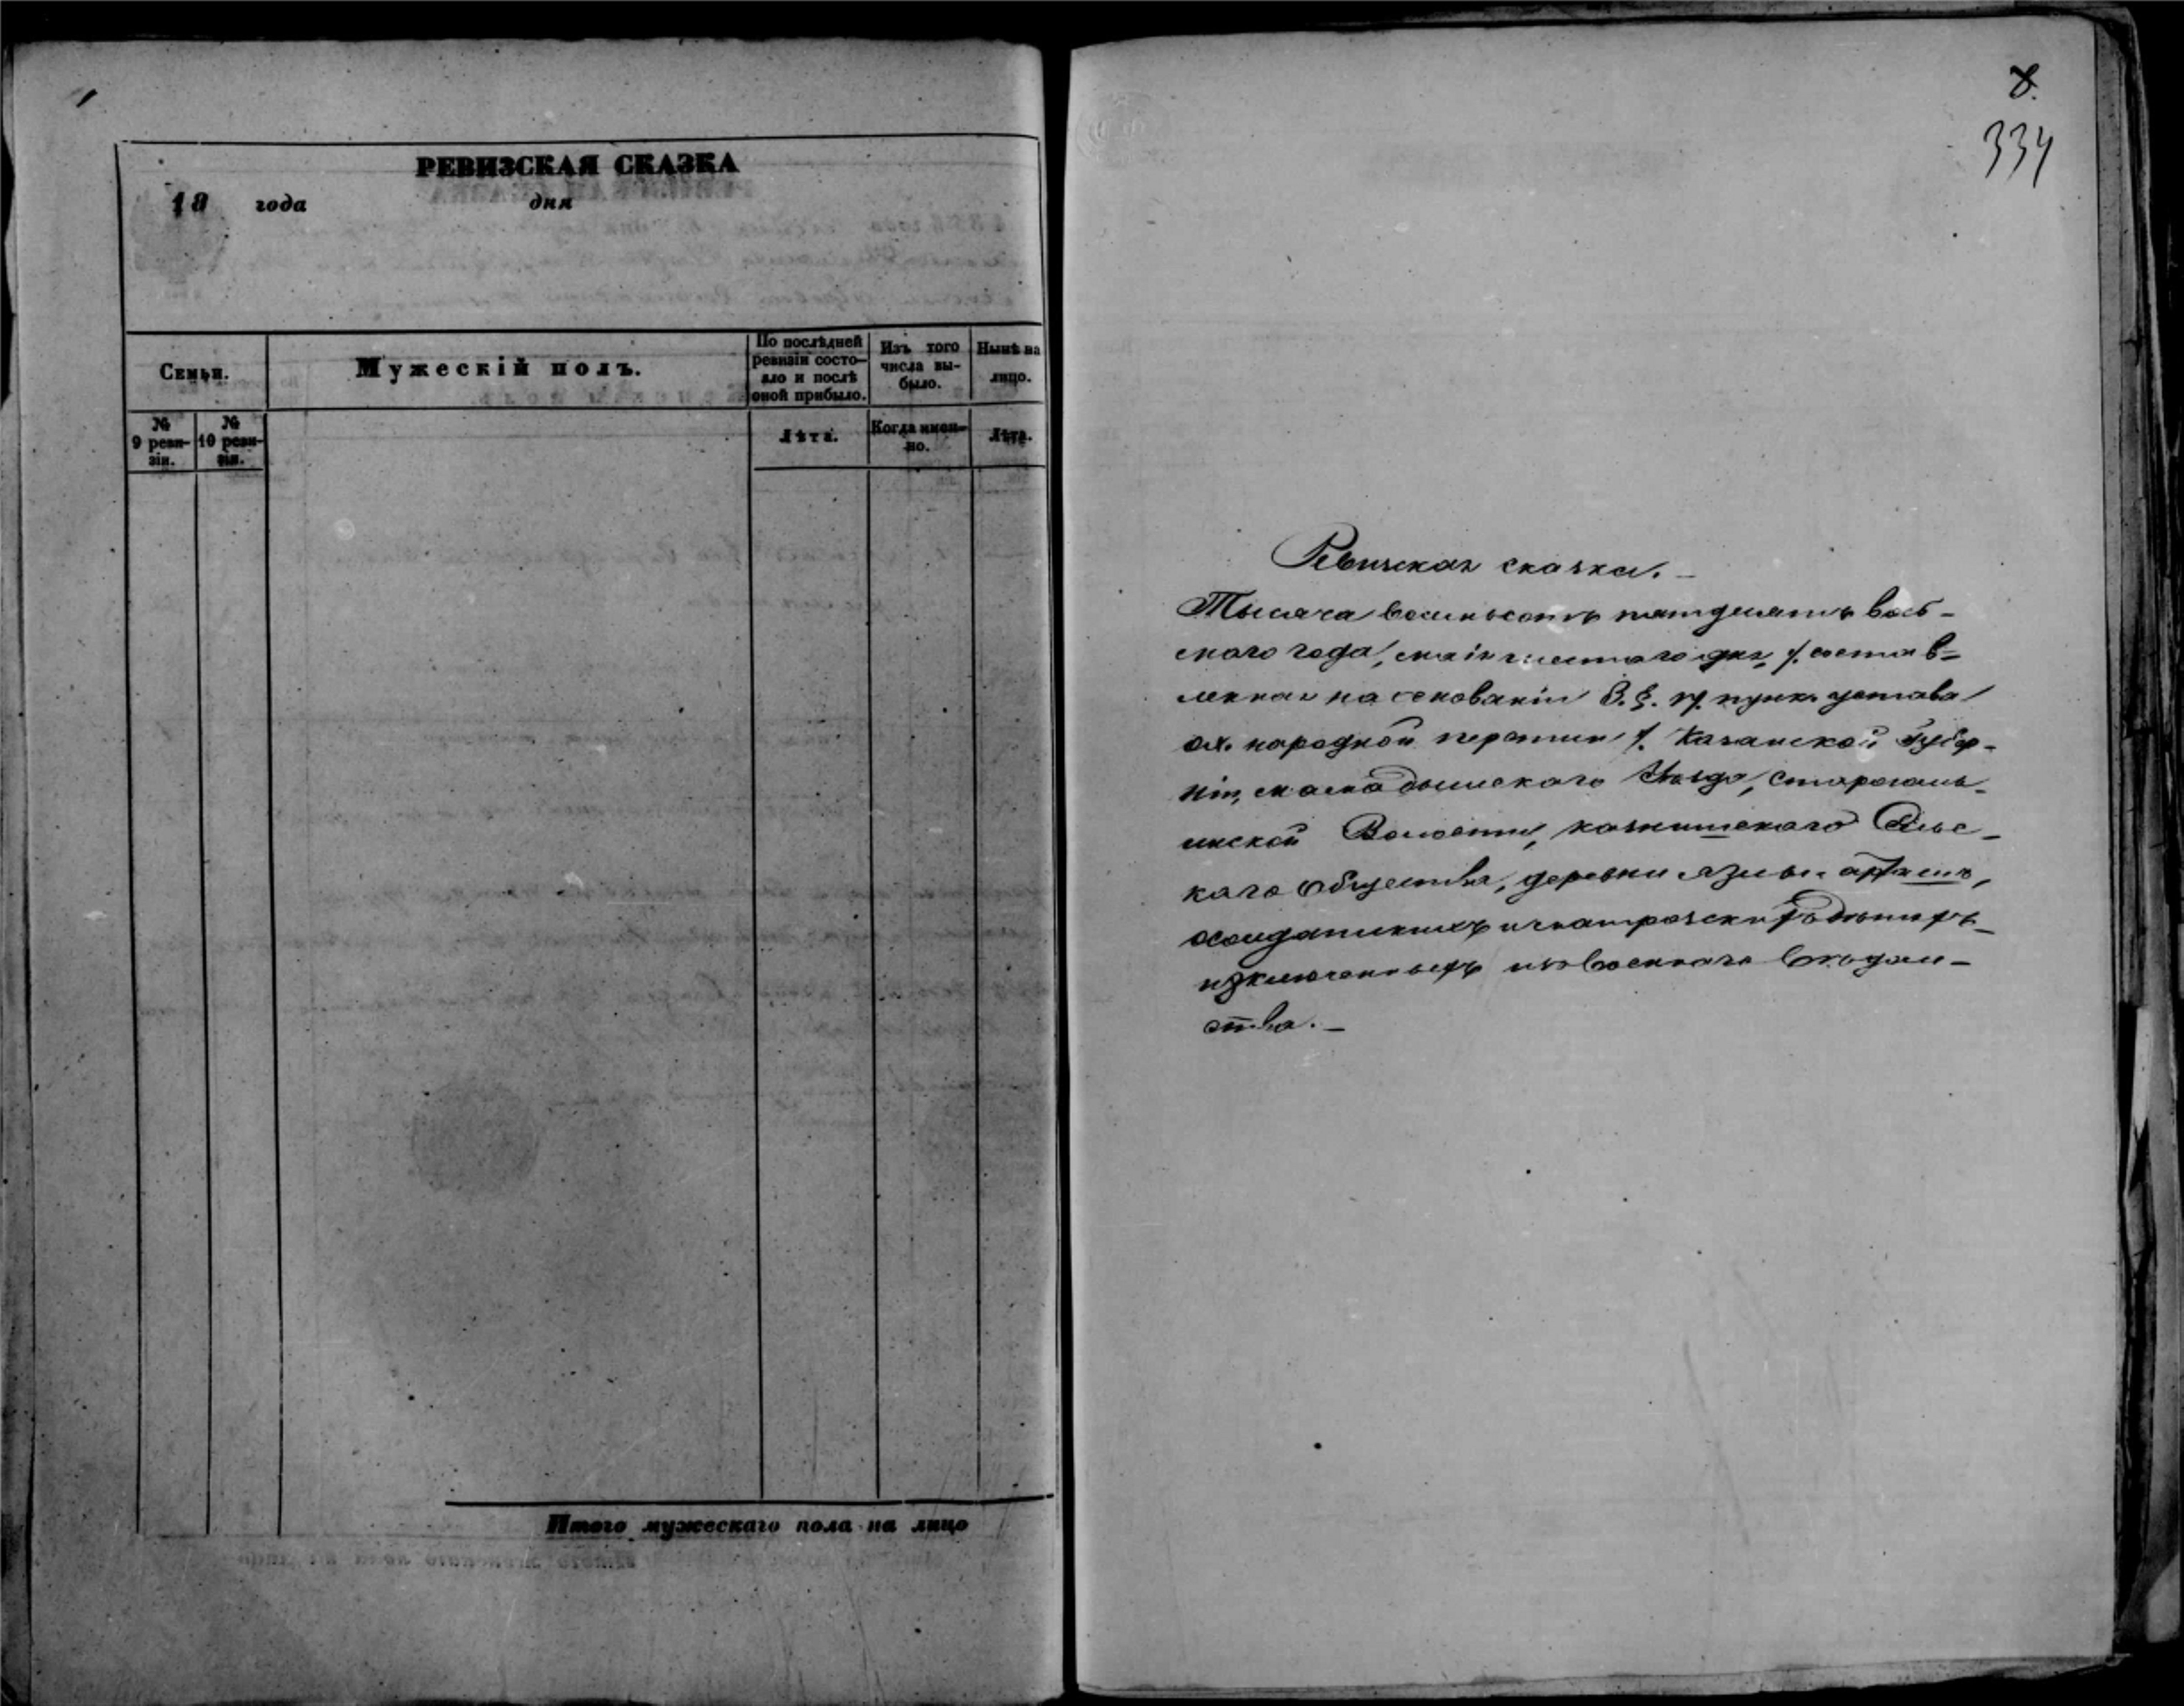 РЕВИЗСКАЯ СКАЗКА
18 года дня
Семьи.
Мужескій полъ.
По послѣдней ревизіи состо-
яло и послѣ
оной прибыло.
Изъ того
числа вы-
было.
Нынѣ на
лицо.
№
9 реви-
зіи.
№
10 реви-
зіи.
Лѣта.
Когда имен-
но.
Лѣта.
Итого мужескаго пола на лицо
8.
334
Ревизская сказка.
Тысяча восемьсотъ пятдесятъ вось-
маго года, маія шестаго дня, составъ-
ленная на основаніи пунк. устава
о народной переписи Казанской Губер-
ніи, Мамадышскаго Уѣзда,
Волости, Сельс-
каго Общества, деревни
изключенныхъ изъ военнаго вѣдом-
ства.